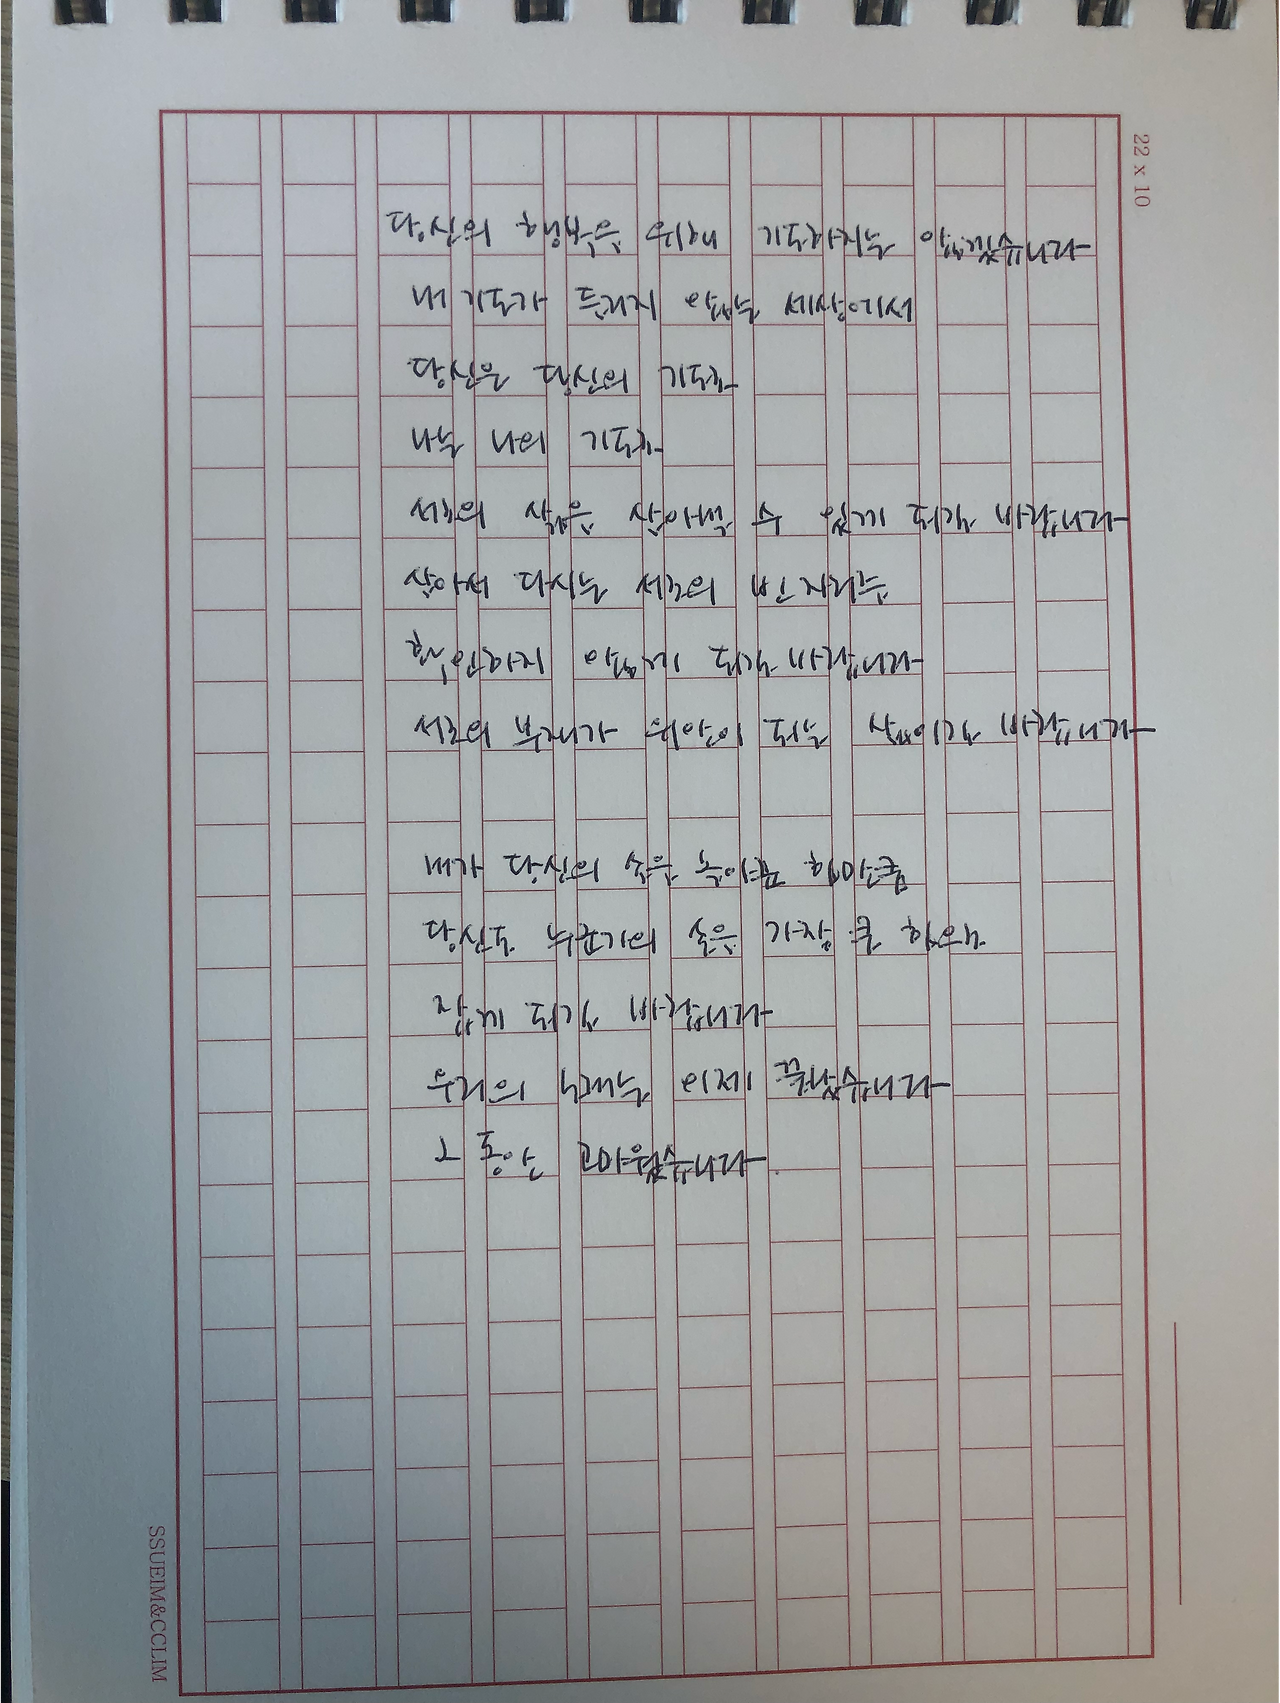 22 x 10
당신의 행복을 위해 기도하지는 않겠습니다
내 기도가 들리지 않는 세상에서
당신은 당신의 기도가
나는 나의 기도가
서로의 삶을 살아낼 수 있게 되길 바랍니다
살아서 다시는 서로의 빈 자리를
확인하지 않게 되길 바랍니다
서로의 부재가 위안이 되는 삶이길 바랍니다
내가 당신의 손을 놓아준 힘만큼
당신도 누군가의 손을 가장 큰 힘으로
잡게 되길 바랍니다
우리의 노래는 이제 끝났습니다
그 동안 고마웠습니다.
SSUEIM&CCLIM